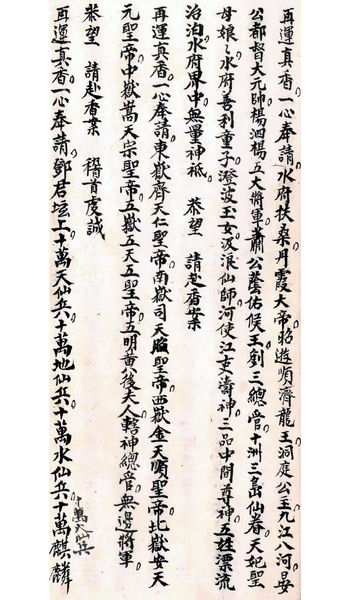 再運真香一心奉請水府扶桑丹霞大帝昭遊順濟龍王洞庭公主九江八河晏
公都督大元帥楊泗楊五大將軍蕭公薹佑候王劉三總管十洲三島仙眷天妃聖
母娘〻水府善利童子澄波玉女汲浪仙師河使江吏濤神三品中間尊神五姓漂流
治泊水府界中無量神祗　恭望　請赴香案
再運真香一心奉請東嶽齊天仁聖帝南嶽司天昭聖帝西嶽金天順聖帝北嶽安天
元聖帝中嶽嵩天宗聖帝五嶽五天五聖帝五明黃後夫人轄神總管無邊將軍
恭望　請赴香案　稽首虔誠
再運真香一心奉請鄧君壇上十萬天仙兵十萬地仙兵十萬水仙兵十萬麒麟
十萬火仙兵